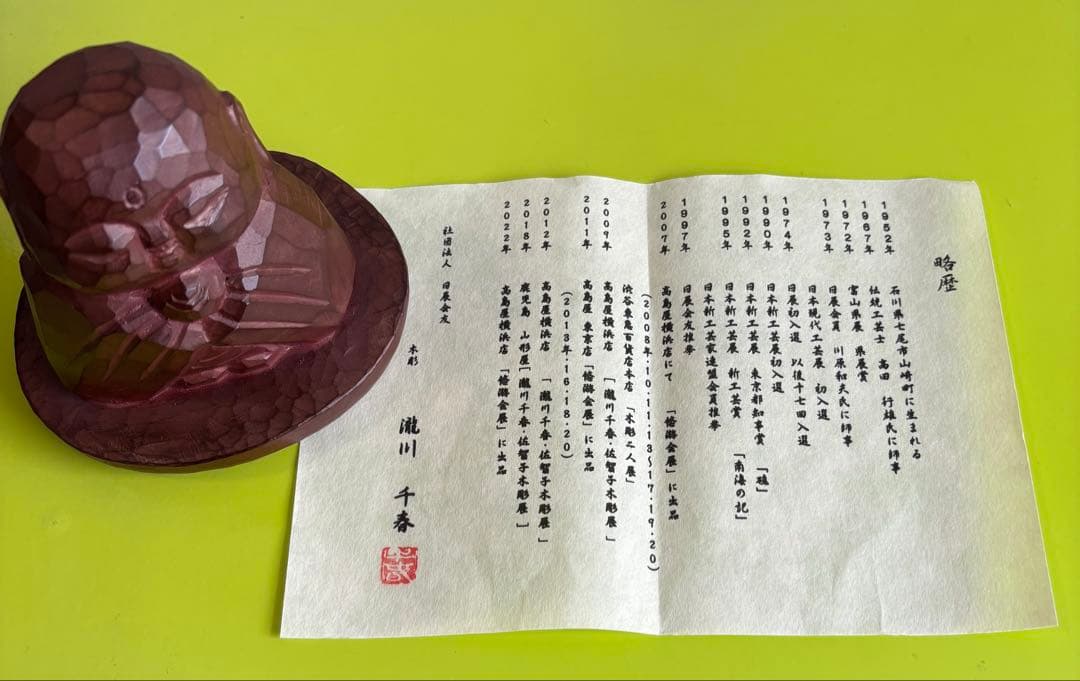 略歴
1952年　石川県七尾市山崎町に生まれる
1967年　伝統工芸士　高田　行雄氏に師事
1972年　富山県展　県展賞
1973年　日展会員　川原和夫氏に師事
日本現代工芸展　初入選
1974年　日展初入選　以後十七回入選
1990年　日本新工芸展初入選
1992年　日本新工芸展　東京都知事賞　「磯」
1995年　日本新工芸展　新工芸賞　「南海の記」
日本新工芸家連盟会員推挙
1997年　日展会友推挙
2007年　高島屋横浜店にて　「悠游会展」に出品
（2008年・10・11・13〜17・19・20）
渋谷東急百貨店本店　「木彫二人展」
2009年　高島屋横浜店　「瀧川千春・佐智子木彫展」
2011年　高島屋　東京店「悠游会展」に出品
（2013年・16・18・20）
2012年　高島屋横浜店　「瀧川千春・佐智子木彫展」
2018年　鹿児島　山形屋「瀧川千春・佐智子木彫展」
2022年　高島屋横浜店　「悠游会展」に出品
社団法人　日展会友
木彫　瀧川　千春